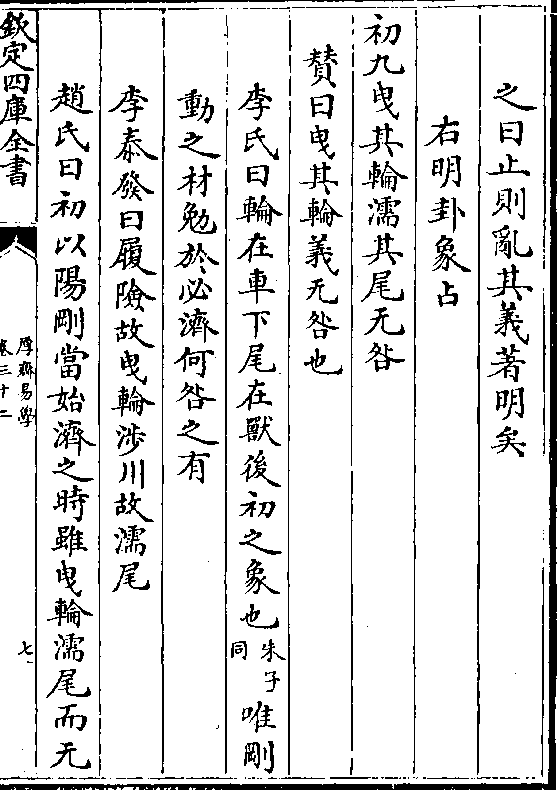 之曰止則亂其義著明矣
右明卦象占
初九曳其輪濡其尾无咎
贊曰曳其輪義无咎也
李氏曰輪在車下尾在獸後初之象也朱子同唯剛
動之材勉於必濟何咎之有
李泰發曰履險故曳輪涉川故濡尾
趙氏曰初以陽剛當始濟之時雖曳輪濡尾而无
欽定四庫全書
厚齋易學
卷三十二
七